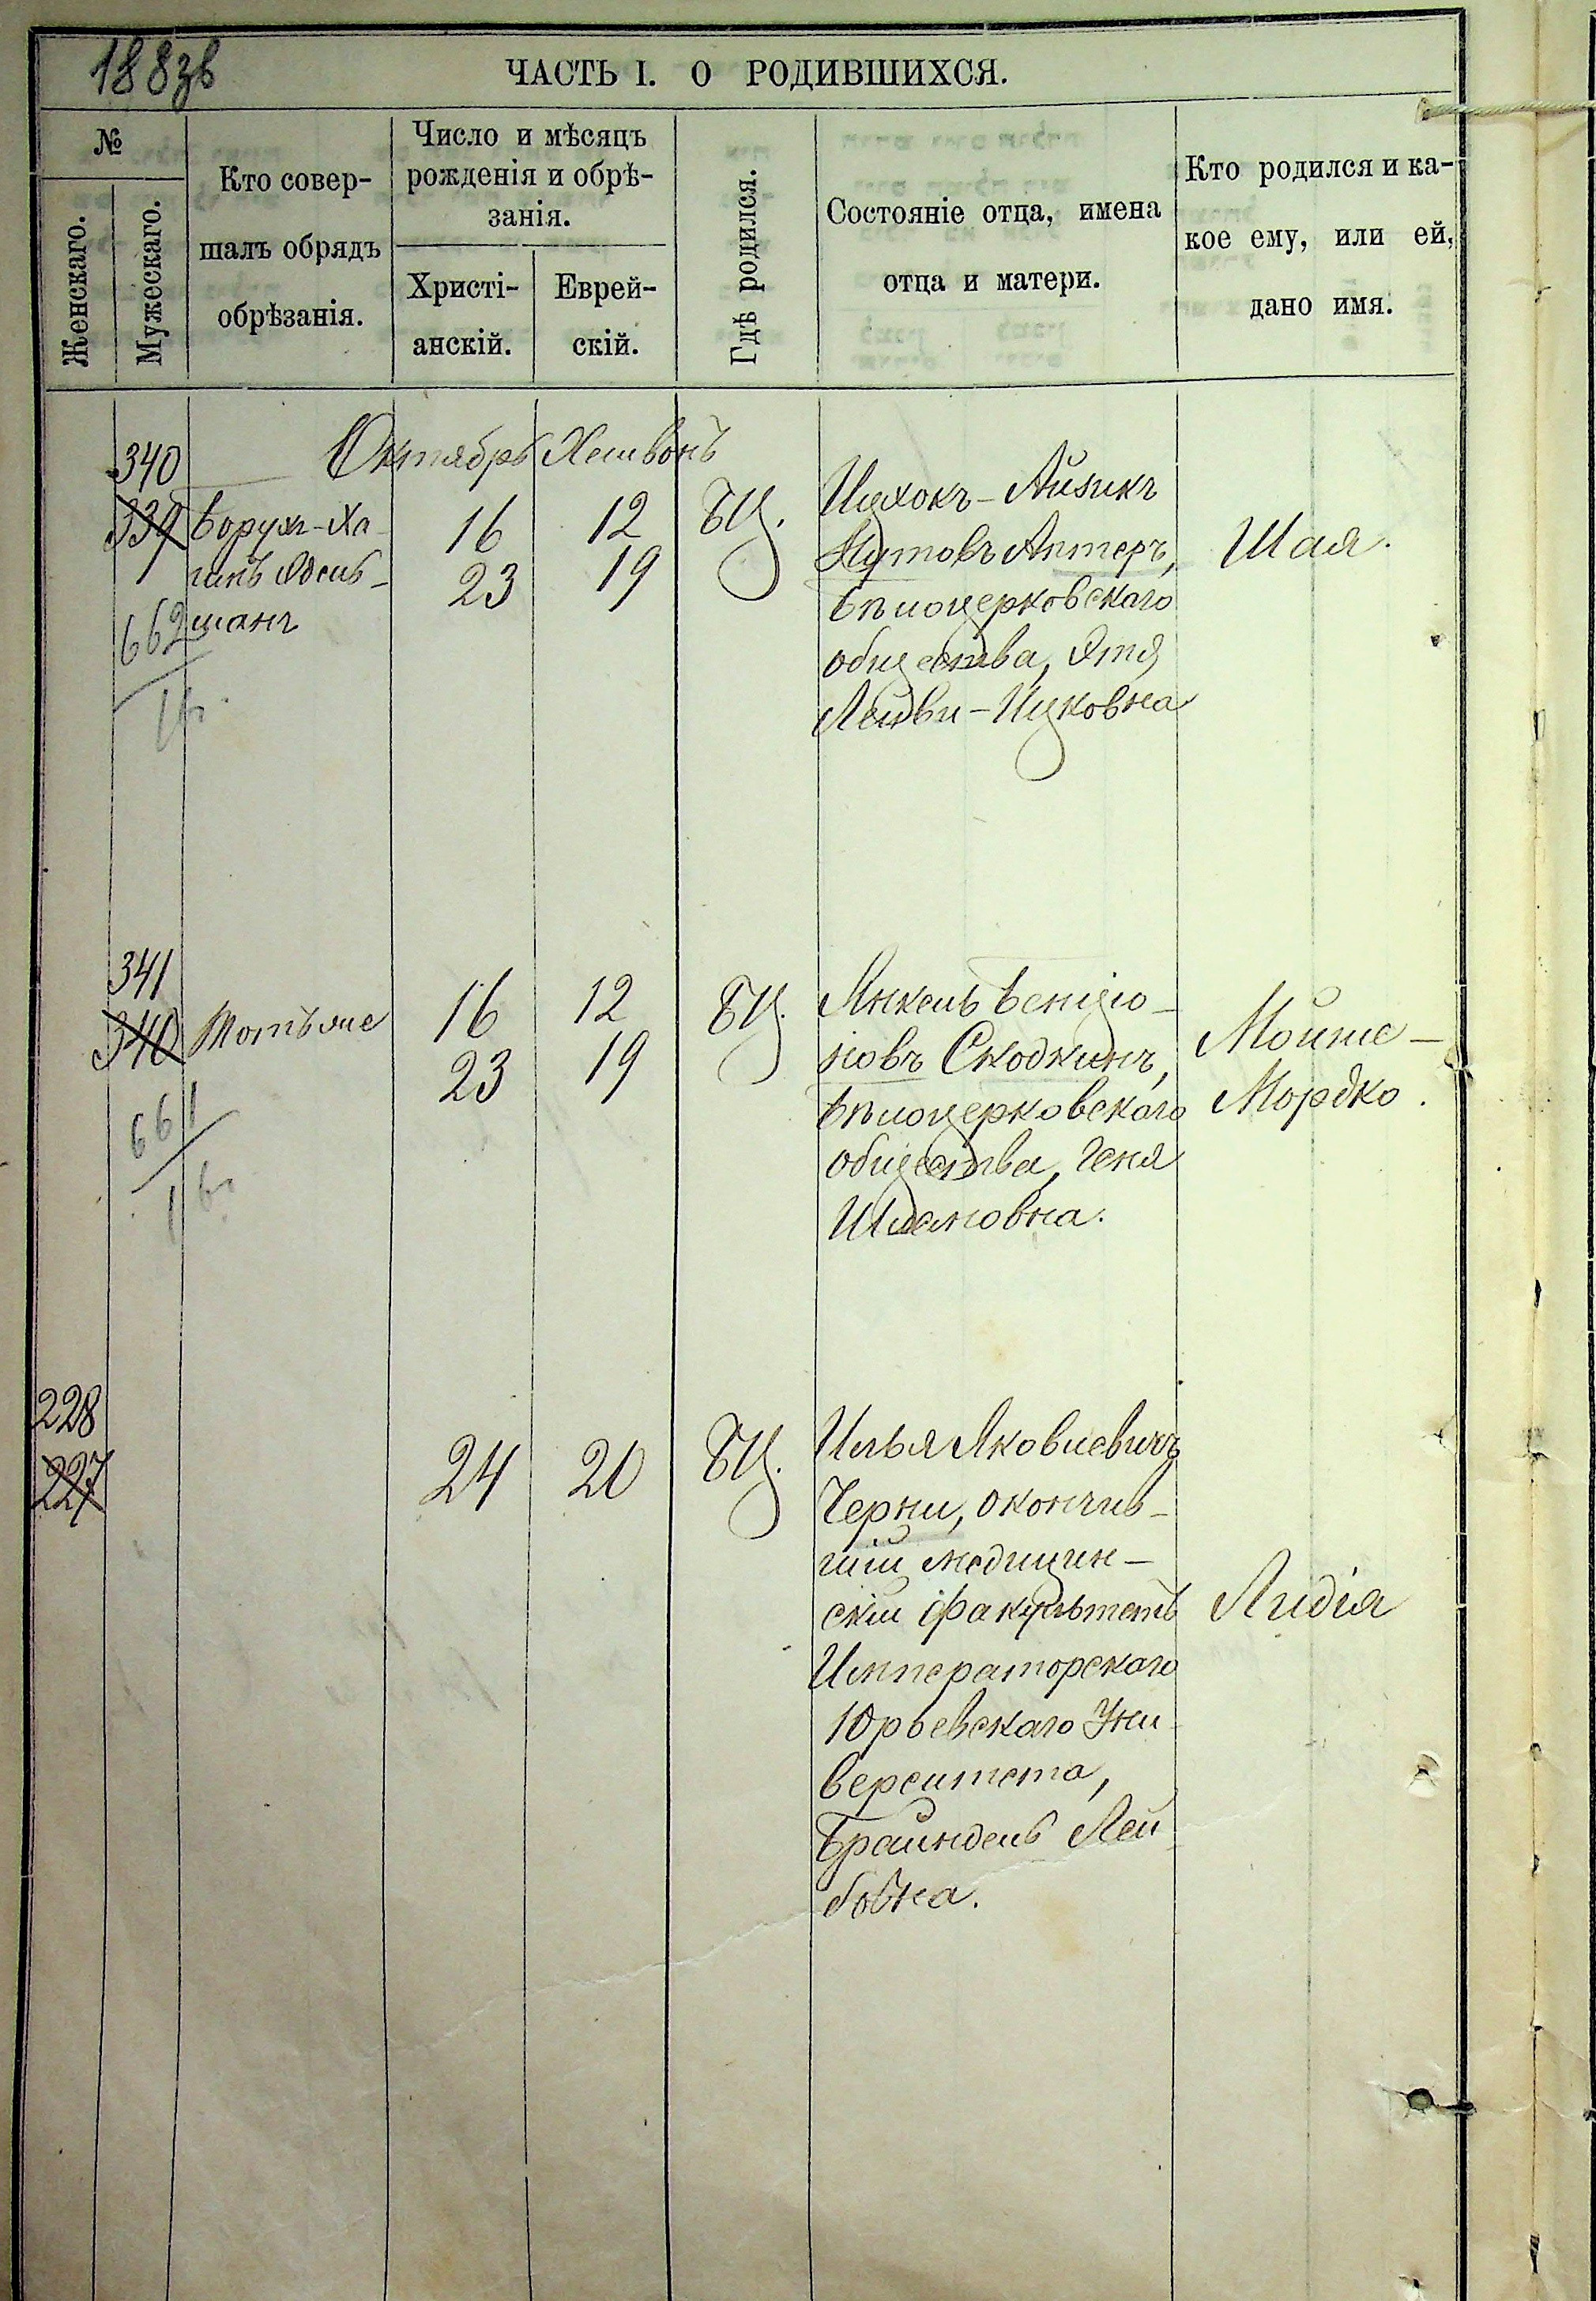 188зв
ЧАСТЬ I. О РОДИВШИХСЯ.
№
Женскаго.
Мужескаго.
Кто совер-
шалъ обрядъ
обрѣзанія.
Число и мѣсяцъ
рожденія и обрѣ-
занія.
Христі-
анскій.
Еврей-
скій.
Гдѣ родился.
Состояніе отца, имена
отца и матери.
Кто родился и ка-
кое ему, или ей,
дано имя.
Октябрь Хешвонъ
340
339
662
1в.
Борухъ-Ха-
имъ Эдель-
манъ
16
23
12
19
БЦ.
Ицхокъ-Айзикъ
Нутовъ Аптеръ,
Бѣлоцерковскаго
общества, Этя
Лейви-Ицковна
Шая.
341
340
661
1в.
Тотъ же
16
23
12
19
БЦ.
Янкель Бенціо-
новъ Скодкинъ,
Бѣлоцерковскаго
общества, Геня
Шлемовна.
Мойше-
Мордко.
228
227
24
20
БЦ.
Илья Яковлевичъ
Черни, окончив-
шій медицин-
скій факультетъ
Императорскаго
Юрьевскаго Уни-
верситета,
Брайндель Лей-
бовна.
Лидія